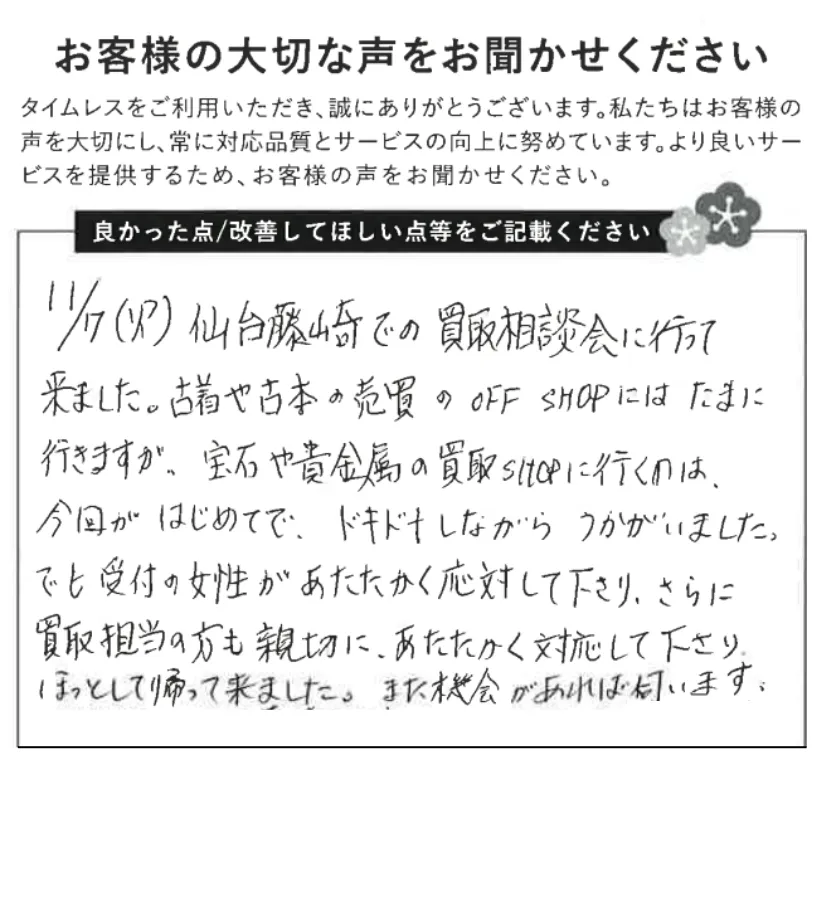 お客様の大切な声をお聞かせください
タイムレスをご利用いただき、誠にありがとうございます。私たちはお客様の
声を大切にし、常に対応品質とサービスの向上に努めています。より良いサー
ビスを提供するため、お客様の声をお聞かせください。
良かった点/改善してほしい点等をご記載ください
11/7(火)仙台藤崎での買取相談会に行って
来ました。古着や古本の売買のOFF SHOPにはたまに
行きますが、宝石や貴金属の買取SHOPに行くのは、
今回がはじめてで、ドキドキしながらうかがいました。
でも受付の女性があたたかく応対して下さり、さらに
買取担当の方も親切に、あたたかく対応して下さり、
ほっとして帰って来ました。また機会があれば伺います。